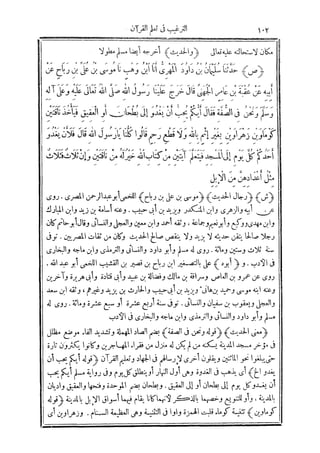 ١٠٢ الترغيب فى تعلم القرآن
مكان لاستحالته عليه تعالى ﴿والحديث﴾ أخرجه أيضا مسلم مطولا
﴿ص﴾ حَدَّثَنَا سُلَيْمَانُ بْنُ دَاوُدَ الْمَهْرِىُّ أَنَا ابْنُ وَهْبٍ نَا مُوسَى بْنُ عُلَىِّ بْنِ رَبَاحٍ عَنْ
أَبِيهِ عَنْ عُقْبَةَ بْنِ عَامِرٍ الْجُهَنِىِّ قَالَ خَرَجَ عَلَيْنَا رَسُولُ اللهِ صَلَّى اللهُ تَعَالَى عَلَيْهِ وَعَلَى آلِهِ
وَسَلَّمَ وَنَحْنُ فِى الصُّفَّةِ فَقَالَ أَيُّكُمْ يُحِبُّ أَنْ يَغْدُوَ إِلَى بُطْحَانَ أَوِ الْعَقِيقِ فَيَأْخُذَ نَاقَتَيْنِ
كَوْمَاوَيْنِ زَهْرَاوَيْنِ بِغَيْرِ إِثْمٍ بِاللهِ وَلَا قَطْعِ رَحِمٍ قَالُوا كُلُّنَا يَارَسُولَ اللهِ قَالَ فَلَأَنْ يَغْدُوَ
أَحَدُكُمْ كُلَّ يَوْمٍ إِلَى الْمَسْجِدِ فَيَتَعَلَّمَ آيَتَيْنِ مِنْ كِتَابِ اللهِ خَيْرٌ لَهُ مِنْ نَاقَتَيْنِ وَإِنْ ثَلَاثٌ فَثَلَاثٌ
مِثْلُ أَعْدَادِهِنَّ مِنَ الْإِبِلِ
﴿ش﴾ ﴿رجال الحديث﴾ ﴿موسى بن على بن رباح﴾ اللخمى أبو عبد الرحمن المصرى. روى
عن أبيه والزهرى وابن المنكدر ويزيد بن أبى حبيب. وعنه أسامة بن زيد وابن المبارك
وابن مهدى ووكيع وأبو نعيم وجماعة. وثقه أحمد وابن معين والعجلى والنسائى وقال أبو حاتم كان
رجلا صالحا يتقن حديثه لا يزيد ولا ينقص صالح الحديث وكان من ثقات المصريين. توفى
سنة ثلاث وستين ومائة. روى له مسلم وأبو داود والنسائى والترمذى وابن ماجه والبخارى
فى الأدب. و﴿أبوه﴾ على بالتصغير ابن رباح بن قصير بن القشيب اللخمى أبو عبد الله.
روى عن عمرو بن العاص وسراقة بن مالك وفضالة بن عبيد وأبى قتادة وأبى هريرة وآخرين
وعنه ابنه موسى وحميد بن هانئ ويزيد بن أبى حبيب والحارث بن يزيد وغيرهم. وثقه ابن سعد
والعجلى ويعقوب بن سفيان والنسائى. توفى سنة أربع عشرة أو سبع عشرة ومائة. روى له
مسلم وأبو داود والنسائى والترمذى وابن ماجه والبخارى فى الأدب
﴿معنى الحديث﴾ ﴿قوله ونحن فى الصفة﴾ بضم الصاد المهملة وتشديد الفاء. موضع مظلل
فى مؤخر مسجد المدينة يسكنه من لم يكن له منزل من فقراء المهاجرين وكانوا يكثرون تارة
حتى يبلغوا نحو المائتين ويقلون أخرى لإرسالهم فى الجهاد وتعليم القرآن ﴿قوله أيكم يحب أن
يغدو الخ﴾ أى يذهب فى الغدوة وهى أول النهار أو ينطلق كل يوم وفى رواية مسلم أيكم يحب
أن يغدو كل يوم إلى بطحان أو إلى العقيق. وبطحان بضم الموحدة وفتحها والعقيق واديان
بالمدينة. وأو للتنويع وخصهما بالذكر لأنهما كانا يقام فيهما أسواق الإبل بالمدينة ﴿قوله
كوماوين﴾ تثنية كوماء قلبت الهمزة واوا فى التثنية وهى العظيمة السنام. وزهراوين أى